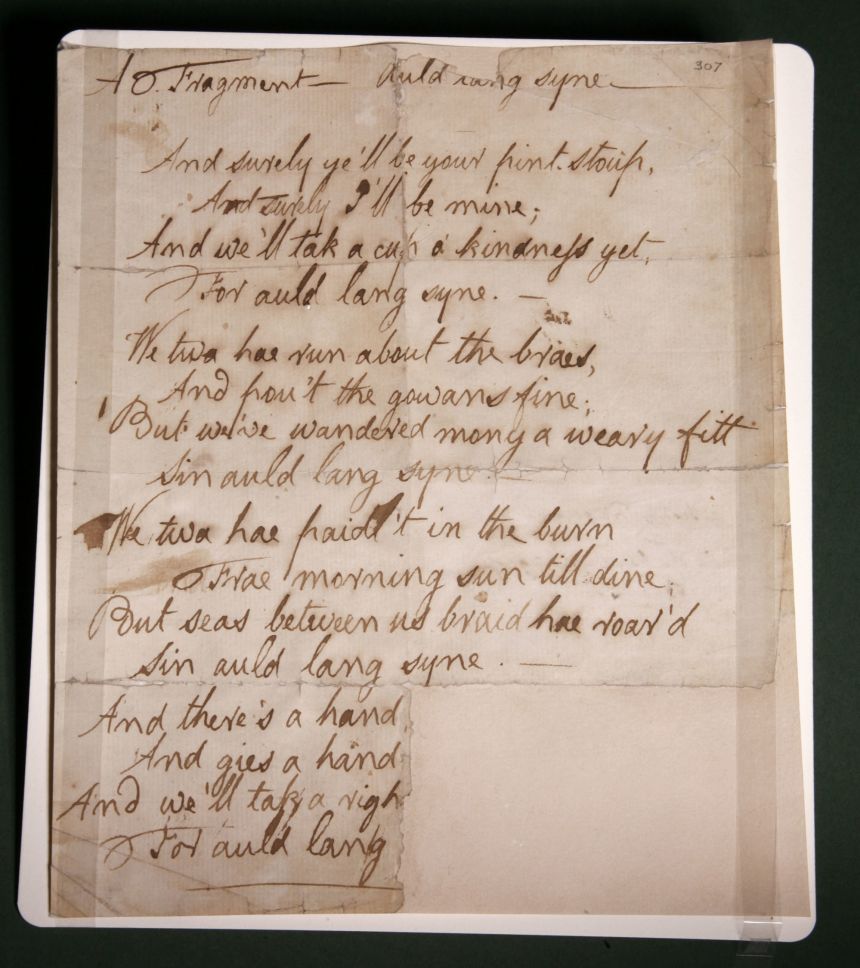 A O. Fragment — Auld lang syne
307
And surely ye'll be your pint-stoup,
And surely I'll be mine;
And we'll tak a cup o' kindness yet,
For auld lang syne. —
We twa hae run about the braes,
And pou't the gowans fine;
But we've wandered mony a weary fitt
Sin auld lang syne. —
We twa hae paidl't in the burn
Frae morning sun till dine;
But seas between us braid hae roar'd
Sin auld lang syne. —
And there's a hand
And gies a hand
And we'll tak a righ
For auld lang